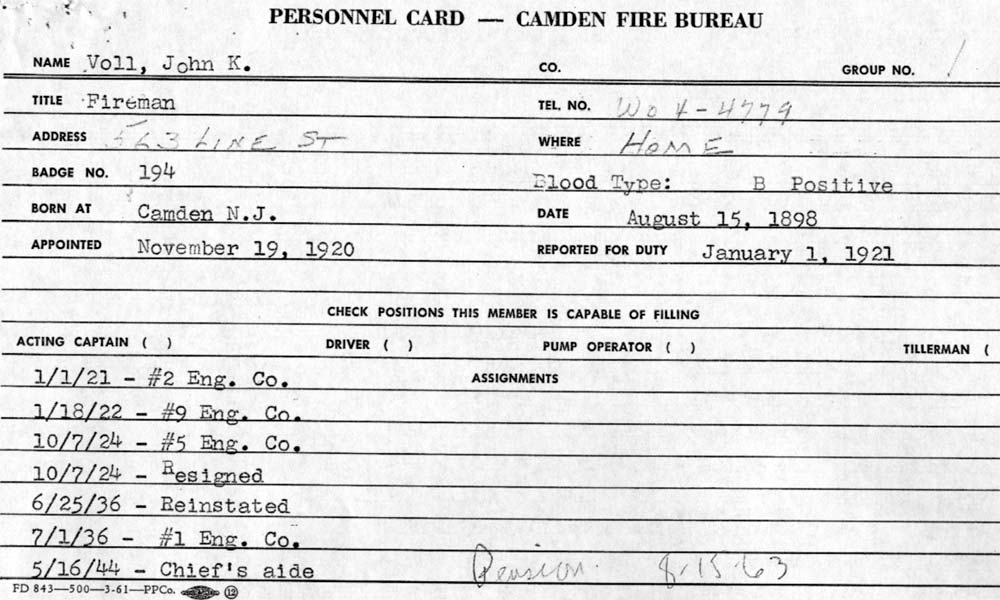 PERSONNEL CARD — CAMDEN FIRE BUREAU
NAME Voll, John K. CO. GROUP NO.
TITLE Fireman TEL. NO. WO 4-4779
ADDRESS 563 LINE ST WHERE HOME
BADGE NO. 194 Blood Type: B Positive
BORN AT Camden N.J. DATE August 15, 1898
APPOINTED November 19, 1920 REPORTED FOR DUTY January 1, 1921
CHECK POSITIONS THIS MEMBER IS CAPABLE OF FILLING
ACTING CAPTAIN ( ) DRIVER ( ) PUMP OPERATOR ( ) TILLERMAN (
1/1/21 - #2 Eng. Co. ASSIGNMENTS
1/18/22 - #9 Eng. Co.
10/7/24 - #5 Eng. Co.
10/7/24 - Resigned
6/25/36 - Reinstated
7/1/36 - #1 Eng. Co.
5/16/44 - Chief's aide Pension 8-15-63
FD 843—500—3-61—PPCo. 12